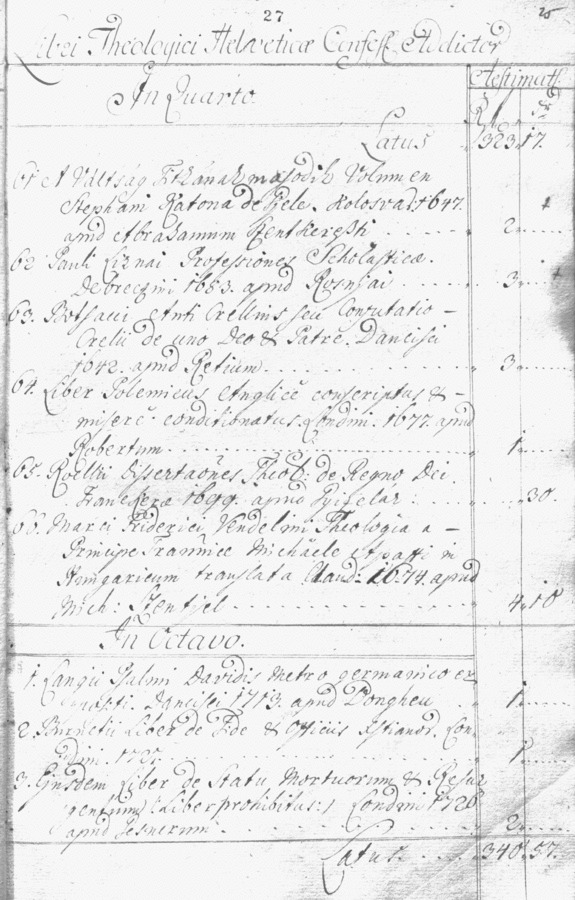 27
Libri Theologici Helveticæ Confess. Addictor
Aestimatio
In Quarto.
Rf. xr
Latus 323. 17.
61 A Váltság Titkának második Volumen
Stephani Katona de Gele. Kolosvar. 1647.
apud Abrahamum Szentkereszti - - - - 2.
62 Pauli Liznai Professiones Scholasticæ.
Debreczini 1683. apud Rosnyai - - - - 3.
63. Botsaci Anti Crellius seu Confutatio -
Crelii de uno Deo & Patre. Dancisci
1642. apud Retium - - - - 3.
64. Liber Polemicus Anglicè conscriptus & -
miserè conditionatus. Londini. 1677. apud
Robertum - - - - 1.
65. Roellii Dissertaōnes Theol. de Regno Dei
Franekeræ 1699. apud - - - - 30.
66. Marci Friderici Vendelini Theologia a -
Principe Trannice Michäele Apaffi in
Hungaricum translata Claud: 1674. apud
Mich: Szentyel - - - - 4. 10
In Octavo.
1. Langii Psalmi Davidis Metro germanico ex
Dancisci 1713. apud - - - - 1.
2. Burnetii Liber de Fide & Officiis Xstianor. Lon
dini 1727. - - - - 1.
3. Ejusdem Liber de Statu Mortuorum & Resur
gentium (: Liber prohibitus :) Londini 1726
apud - - - - 2.
Latus - - - - 340. 57.